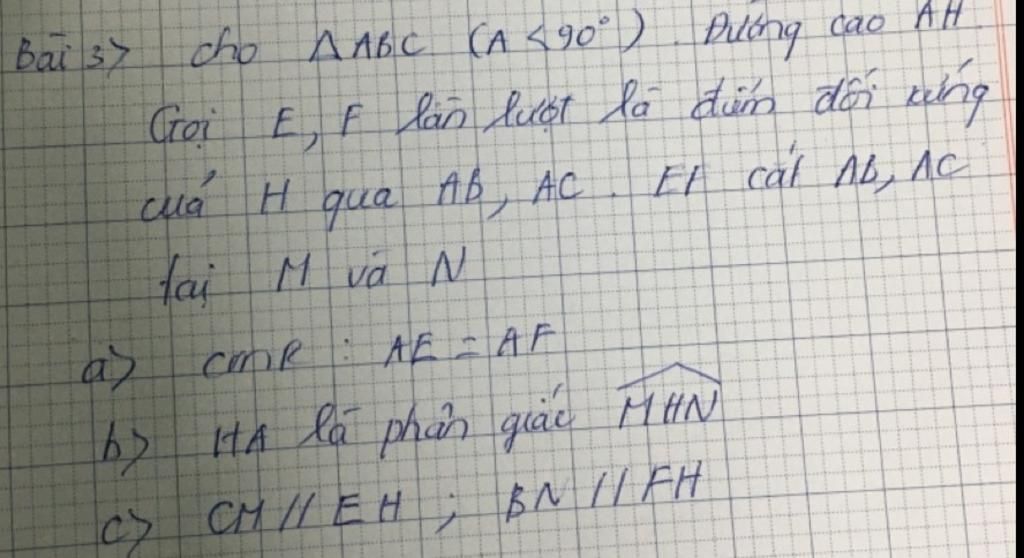 Bài 3> Cho ΔABC (A < 90°). Đường cao AH.
Gọi E, F lần lượt là điểm đối xứng
của H qua AB, AC. EF cắt AB, AC
tại M và N
a> CMR : AE = AF
b> HA là phân giác \widehat{MHN}
c> CM // EH ; BN // FH